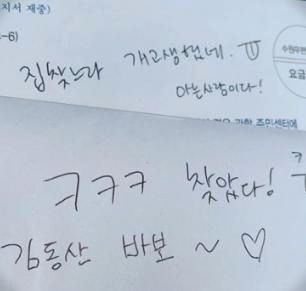 지서 재중)
-6)
집찾느라 개고생했네. ㅠ
아는사람이다!
수취인우편
요금
주민센터에
ㅋㅋㅋ 찾았다! ㅋ
김동산 바보 ~ ♡